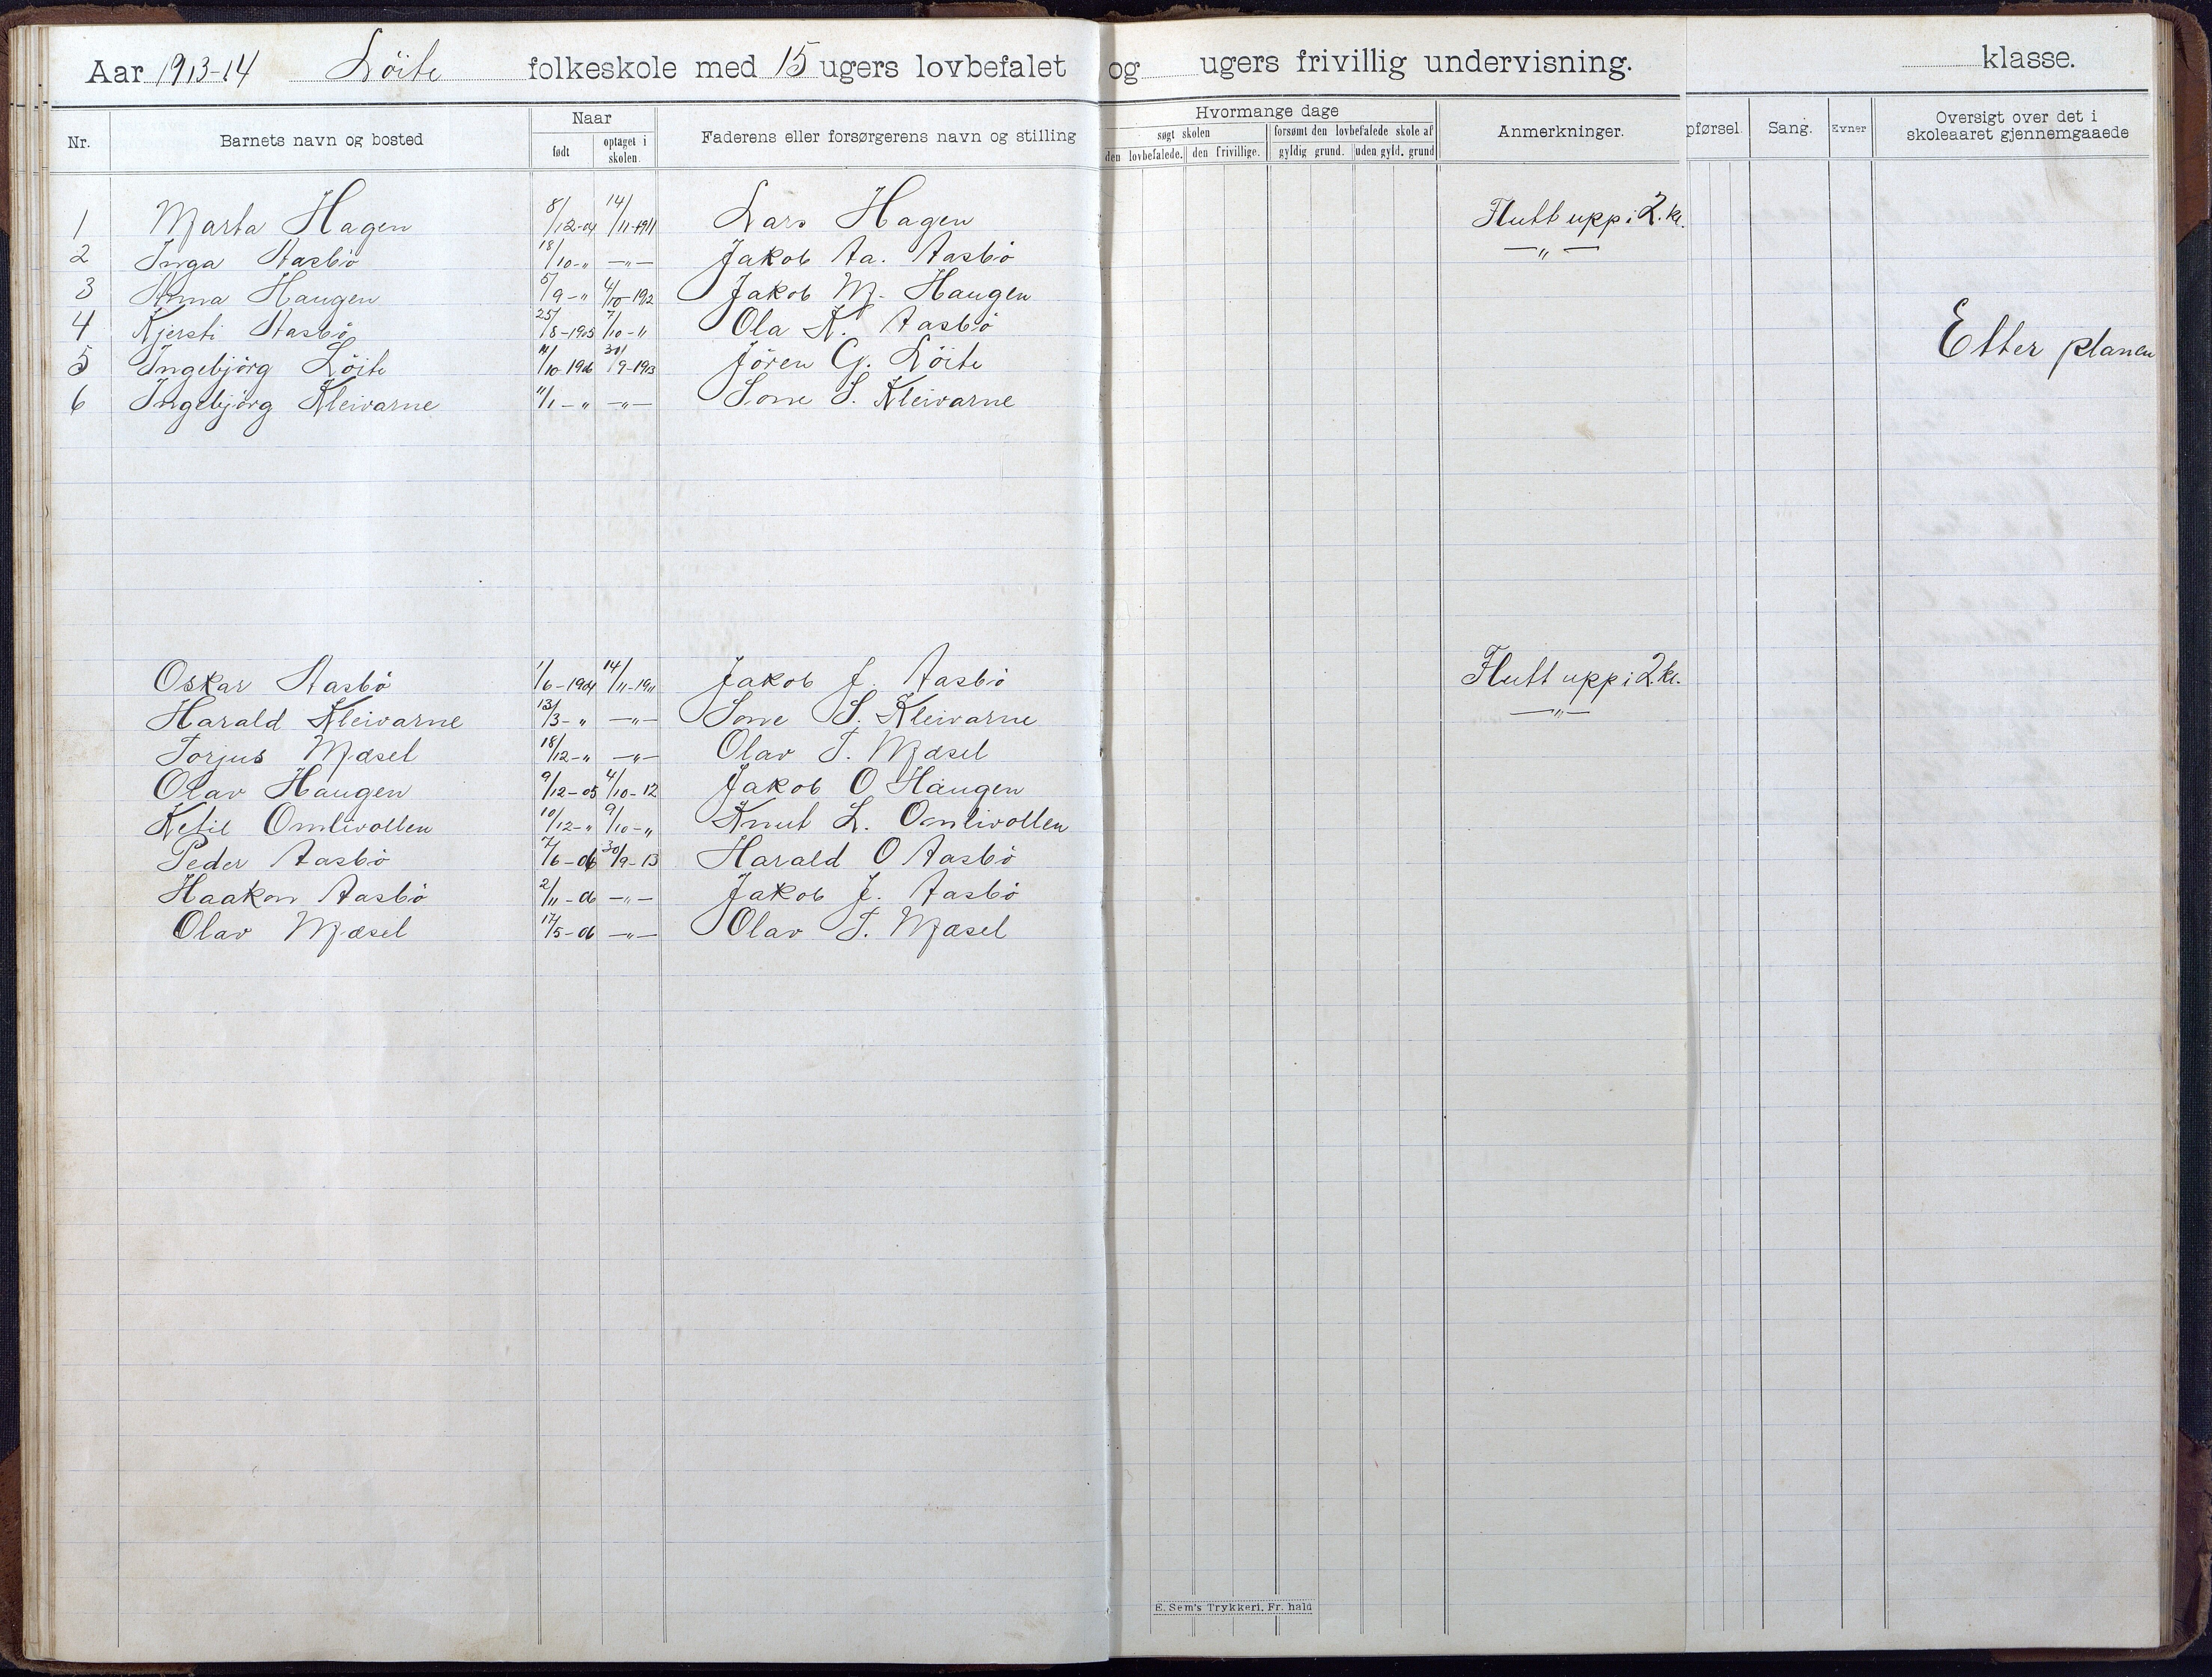 Aar 1913-14 Löite folkeskole med 15 ugers lovbefalet og ugers frivillig undervisning. klasse.
Nr. Barnets navn og bosted Naar født optaget i skolen. Faderens eller forsørgerens navn og stilling Hvormange dage søgt skolen den lovbefalede. den frivillige. forsømt den lovbefalede skole af gyldig grund. uden gyld. grund Anmerkninger. pførsel. Sang. Evner Oversigt over det i skoleaaret gjennemgaaede
1 Marta Hagen 8/12-04 14/11-1911 Lars Hagen Flutt upp i 2. kl.
2 Inga Aasbö 18/10-" —"— Jakob Aa. Aasbö —"—
3 Anna Haugen 5/9-" 4/10-1912 Jakob M. Haugen
4 Kjersti Aasbö 25/8-1905 7/10-" Ola K. Aasbö
5 Ingebjörg Löite /10-1906 30/9-1913 Jören G. Löite Etter planen
6 Ingebjörg Kleivarne 11/1-" —"— S. Kleivarne
Oskar Aasbö 1/6-1904 14/11-1911 Jakob J. Aasbö Flutt upp i 2. kl.
Harald Kleivarne 13/3-" —"— S. Kleivarne —"—
Torjus Mæsel 18/12-" —"— Olav T. Mæsel
Olav Haugen 9/12-05 4/10-12 Jakob O Haugen
Ketil Omlivollen 10/12-" 9/10-" Knut L. Omlivollen
Peder Aasbö 7/6-06 30/9-13 Harald O Aasbö
Haakon Aasbö 2/11-06 —"— Jakob J. Aasbö
Olav Mæsel 17/5-06 —"— Olav T. Mæsel
E. Sem's Trykkeri, Fr. hald